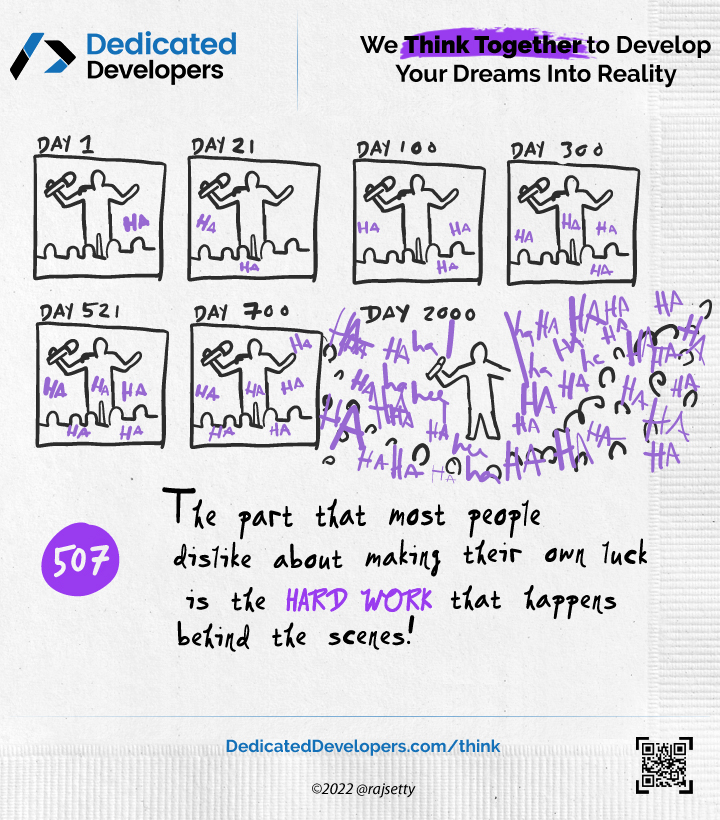 Dedicated
Developers
We Think Together to Develop
Your Dreams Into Reality
DAY 1
HA
DAY 21
HA
HA
DAY 100
HA
HA
HA
DAY 300
HA
HA
HA
HA
DAY 521
HA
HA
HA
HA
HA
DAY 700
HA
HA
HA
HA
HA
HA
DAY 2000
HA
HA
ha
HA
HA
HA
HA
HA
HA
HA
HA
HA
HA
HA
HA
HA
HA
507
The part that most people
dislike about making their own luck
is the HARD WORK that happens
behind the scenes!
DedicatedDevelopers.com/think
©2022 @rajsetty